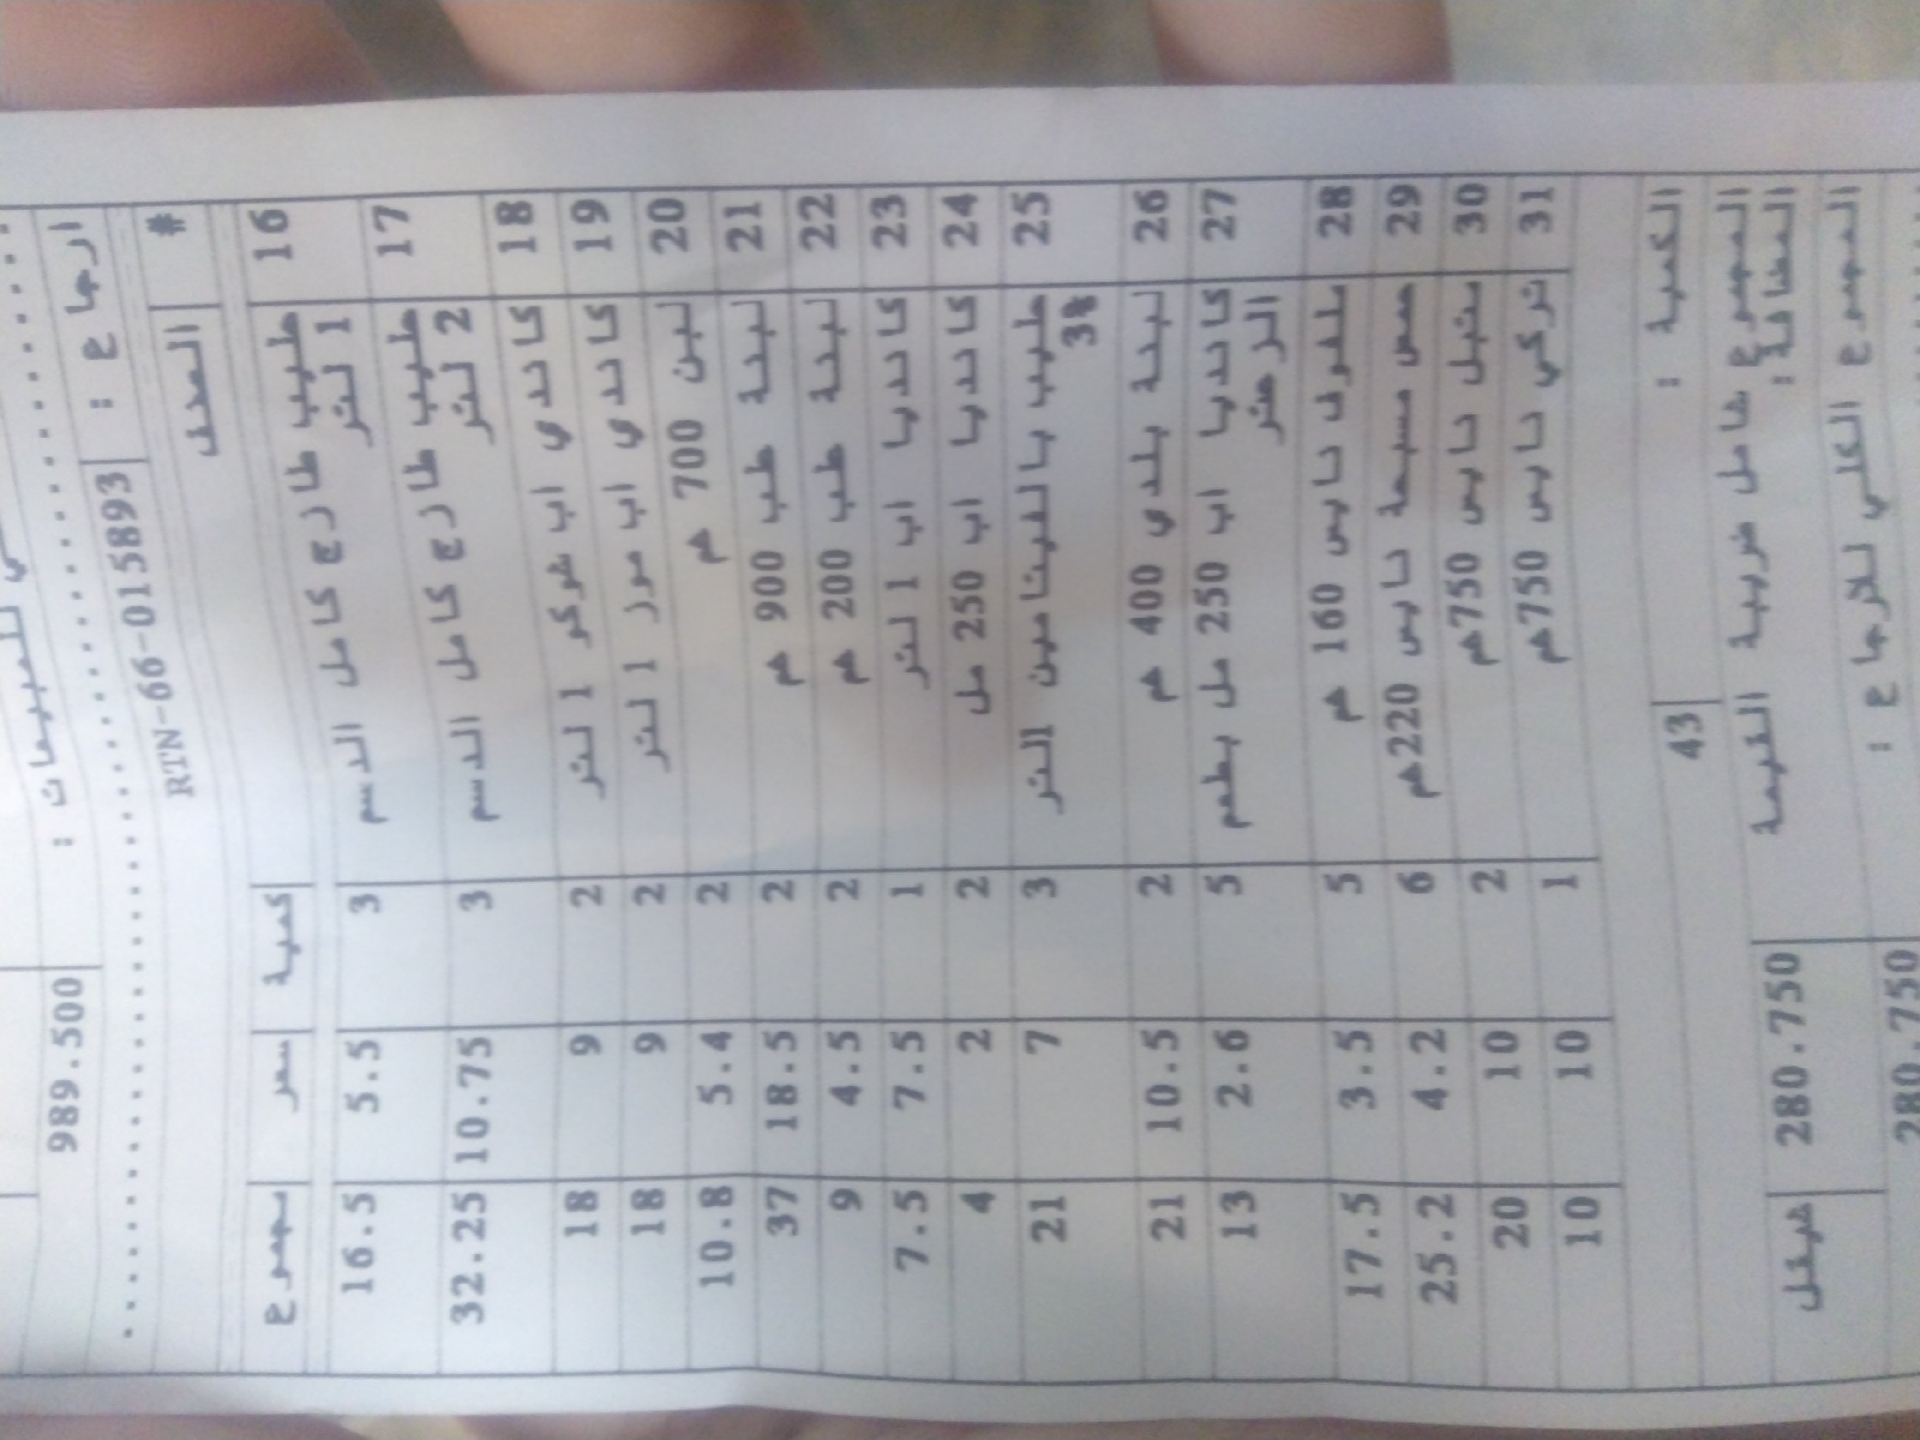 للمبيعات : 989.500
ارجاع : RTN-66-015893
# المحل كمية سعر مجموع
16 حليب طازج كامل الدسم 3 5.5 16.5
1 لتر
17 حليب طازج كامل الدسم 3 10.75 32.25
2 لتر
18 كاندي اب شوكو 1 لتر 2 9 18
19 كاندي اب موز 1 لتر 2 9 18
20 لبن 700 غم 2 5.4 10.8
21 لبنة طب 900 غم 2 18.5 37
22 لبنة طب 200 غم 2 4.5 9
23 كانديا اب 1 لتر 1 7.5 7.5
24 كانديا اب 250 مل 2 2 4
25 حليب بالفيتامين التر 3 7 21
3%
26 لبنة بلدي 400 غم 2 10.5 21
27 كانديا اب 250 مل بطعم 5 2.6 13
28 ملفوف نايس 160 غم 5 3.5 17.5
29 حمص مسبحة نايس 220غم 6 4.2 25.2
30 متبل نايس 750غم 2 10 20
31 تركي نايس 750غم 1 10 10
الكمية : 43
المجموع شامل ضريبة القيمة 280.750 شيقل
المضافة :
المجموع الكلي للارجاع : 280.750